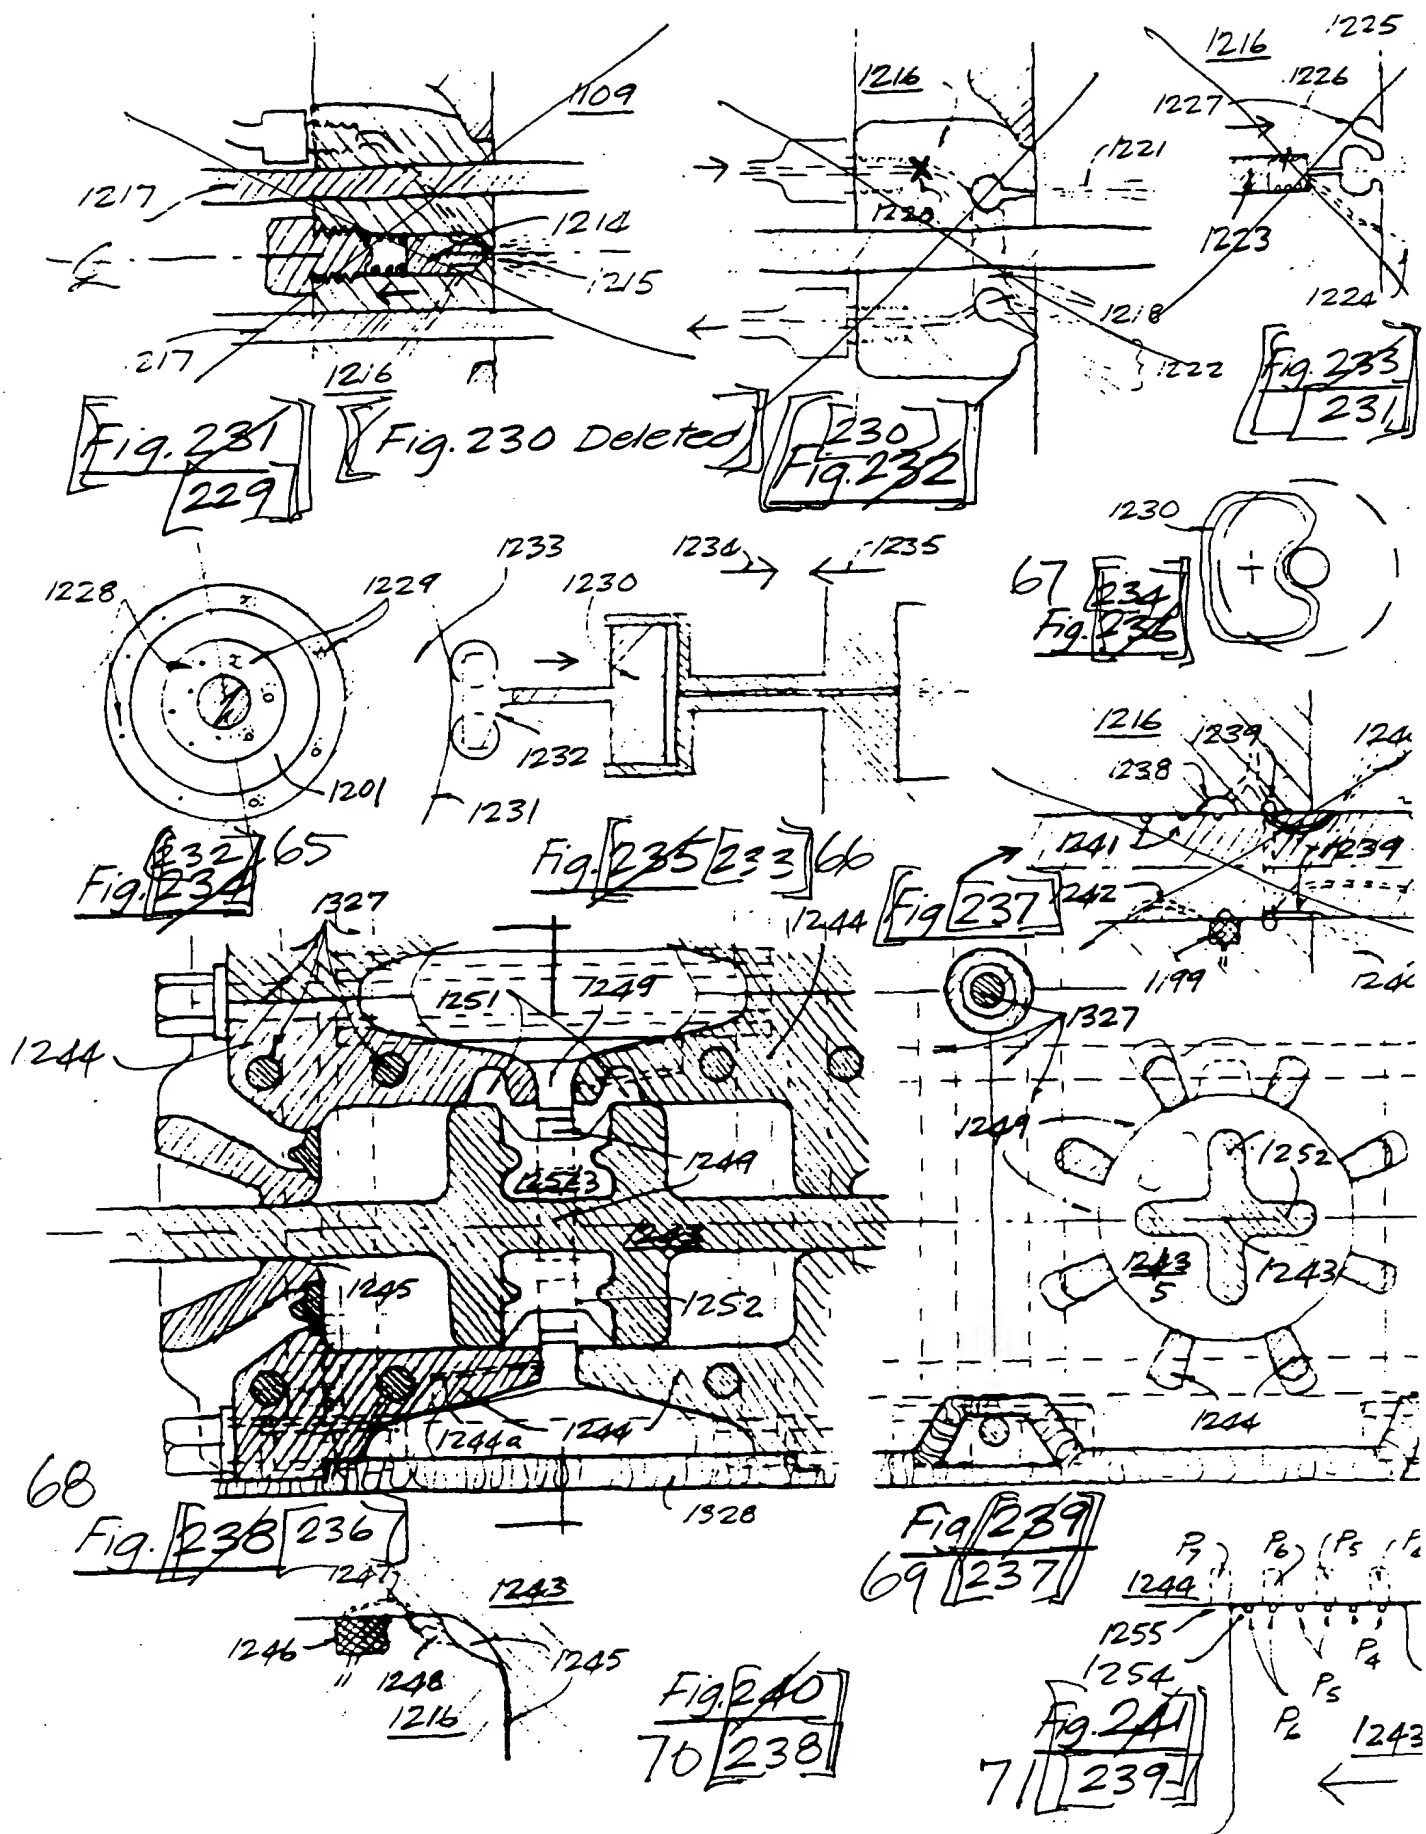 1109
1217
1214
1215
217
1216
Fig. 231
229
Fig. 230 Deleted
1216
1220
1221
1218
1222
230
Fig. 232
1225
1216
1226
1227
1223
1224
Fig. 233
231
1228
1229
1201
232
65
Fig. 234
1233
1234
1235
1230
1232
1231
Fig. 235 233 66
1230
67
234
Fig. 236
1216
1239
1238
1241
1239
1242
1199
Fig 237
1327
1244
1251
1249
1244
1249
1243
1245
1252
1244a
1244
1328
68
Fig. 238 236
1327
1249
1252
1243
1243
5
1244
Fig 239
69 237
1247
1243
1246
1248
1245
1216
Fig. 240
70 238
P7
P6
P5
1244
1255
1254
P4
P5
P6
1243
Fig. 241
71 239